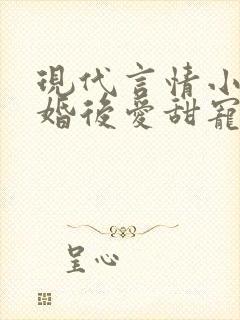 現代言情小
婚後愛甜寵
呈心